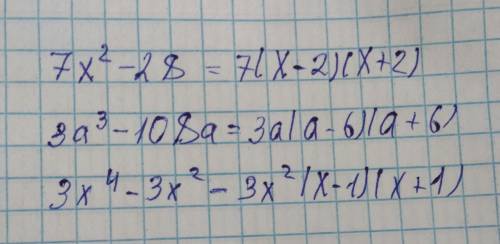 7x² - 28 = 7(x-2)(x+2)
3a³ - 108a = 3a(a-6)(a+6)
3x⁴ - 3x² - 3x²(x-1)(x+1)